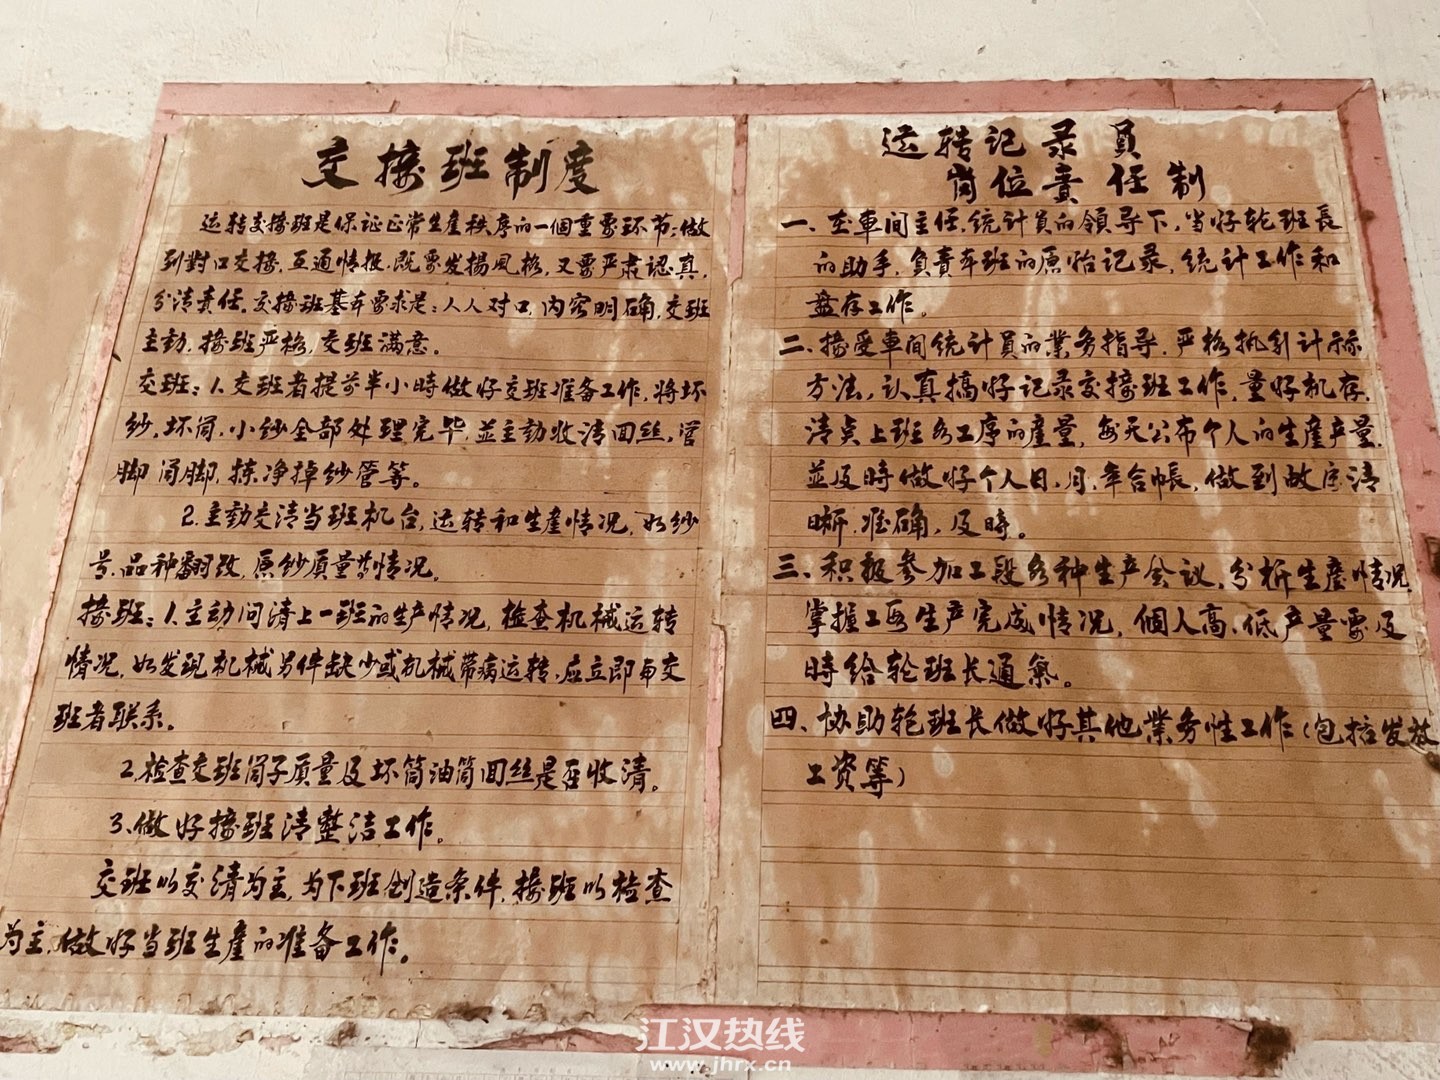 交接班制度
运转交接班是保证正常生産秩序的一個重要环节；做
到對口交接，互通情报，既要发揚風格，又要严肃認真，
分清責任。交接班基本要求是：人人对口，内容明确，交班
主动，接班严格，交班满意。
交班：1.交班者提前半小時做好交班准备工作，将坏
纱，坏筒，小纱全部处理完毕，並主动收清回丝，管
脚筒脚，拣净掉纱管等。
2.主動交清当班机台，运转和生産情况，如纱
号，品种翻改，原纱质量等情况。
接班：1.主动问清上一班的生产情况，检查机械运转
情况，如发现机械另件缺少或机械带病运转，应立即与交
班者联系。
2.检查交班筒子质量及坏筒油筒回丝是否收清。
3、做好接班清整洁工作。
交班以交清为主，为下班创造条件，接班以检查
为主，做好当班生産的准备工作。
运转记录員
岗位責任制
一、在車間主任，统计員的領导下，当好轮班長
的助手，負責本班的原始记录，统计工作和
盘存工作。
二、接受車间统计員的業务指导，严格执行计示
方法，认真搞好记录交接班工作，量好机存，
清点上班各工序的産量，每天公布个人的生産产量，
並及時做好个人日、月、年台帳，做到故字清
晰，准确，及時。
三、积极参加工段各种生产会议，分析生産情况
掌握工西生产完成情况，個人高、低产量要及
時给轮班长通氣。
四、协助轮班长做好其他業务性工作（包括发放
工资等）
江汉热线
www.jhrx.cn